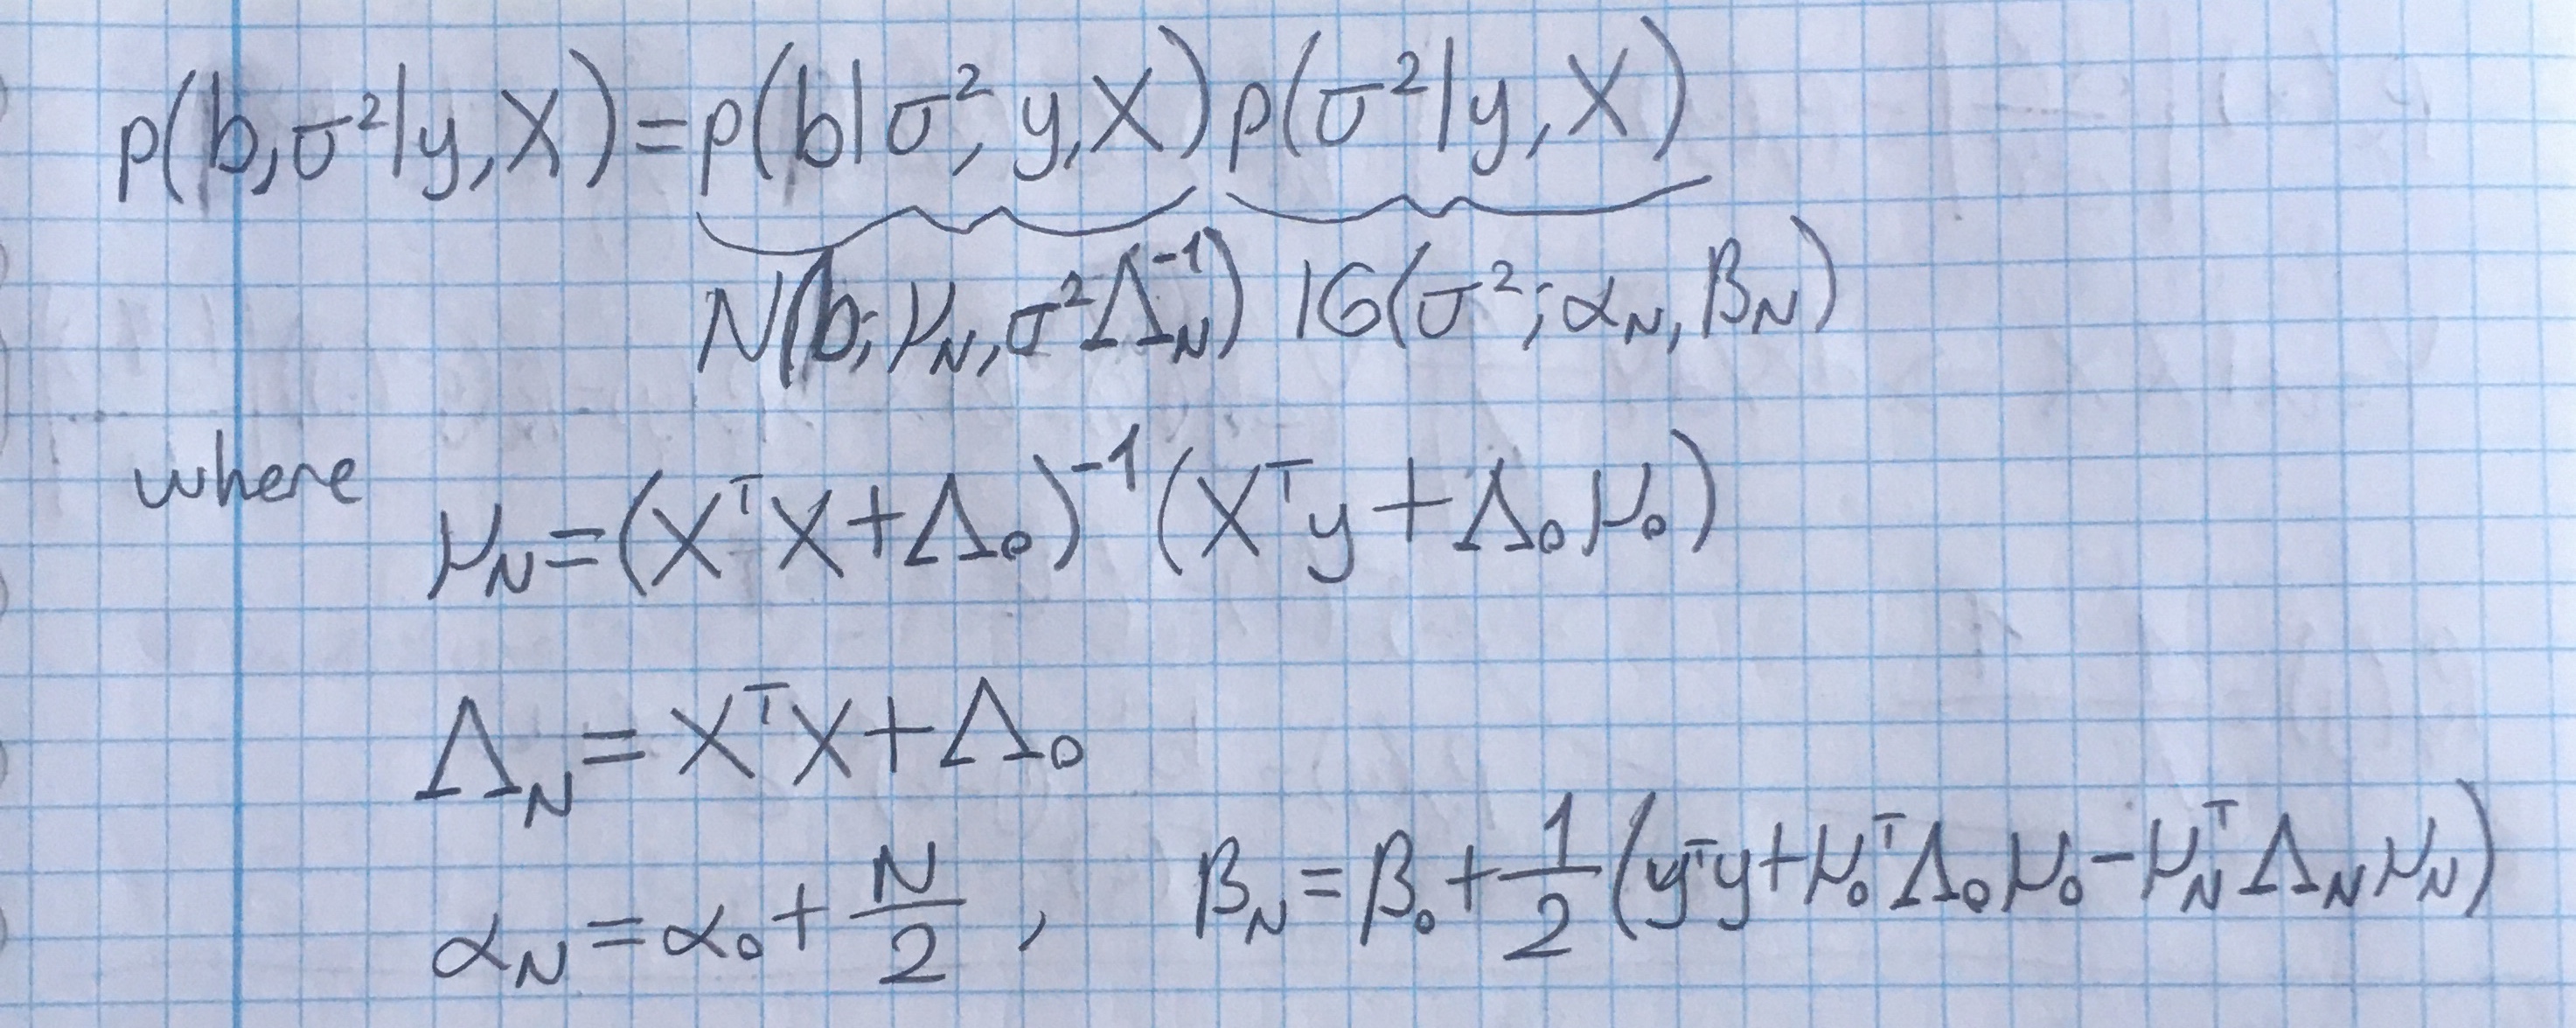 p(b,σ²|y,X)=p(b|σ²,y,X)p(σ²|y,X)
N(b;μ_N,σ²Λ_N⁻¹) IG(σ²;α_N,β_N)
where
μ_N=(XᵀX+Λ₀)⁻¹(Xᵀy+Λ₀μ₀)
Λ_N=XᵀX+Λ₀
α_N=α₀+N/2, β_N=β₀+1/2(yᵀy+μ₀ᵀΛ₀μ₀-μ_NᵀΛ_Nμ_N)